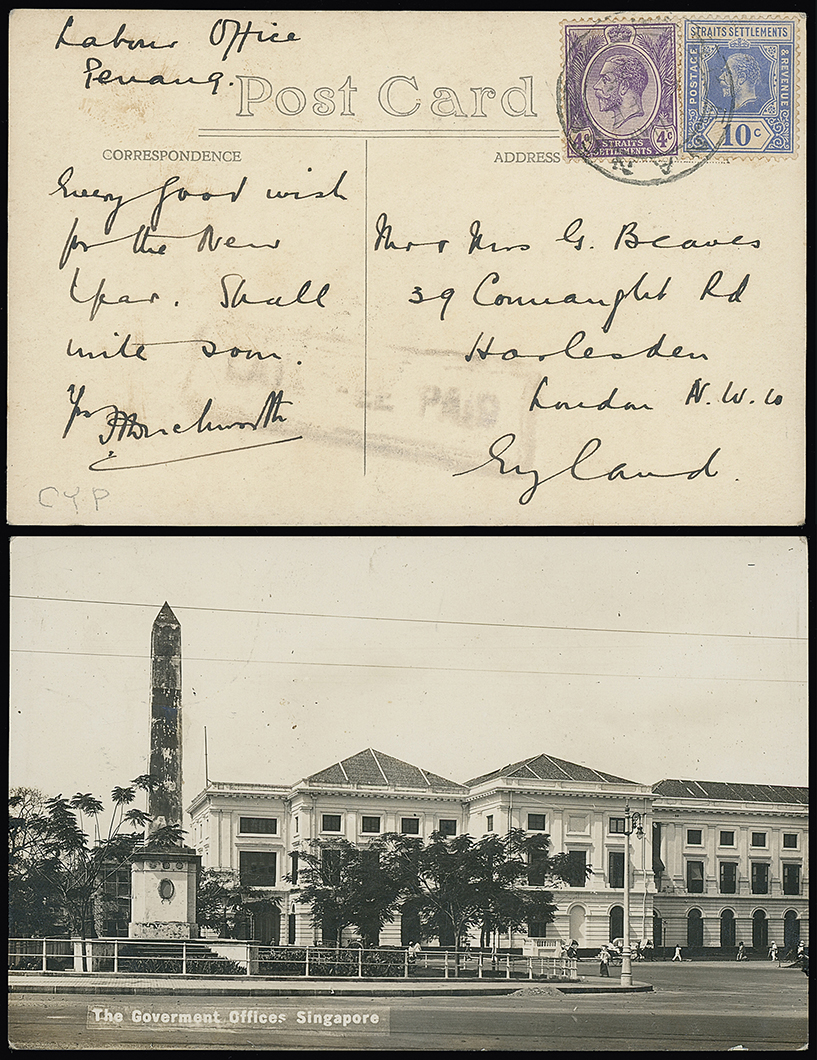 Labour Office
Penang.
Post Card
CORRESPONDENCE
ADDRESS
STRAITS SETTLEMENTS
4c 4c
STRAITS SETTLEMENTS
POSTAGE & REVENUE
10 c
Every good wish
for the New
Year. Shall
write soon.
Yrs
Mr & Mrs G. Beaves
39 Connaught Rd
Harlesden
London N.W. 10
England.
LATE FEE PAID
CYP
The Goverment Offices Singapore